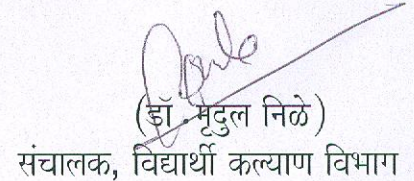 (डॉ. मृदुल निळे)
संचालक, विद्यार्थी कल्याण विभाग